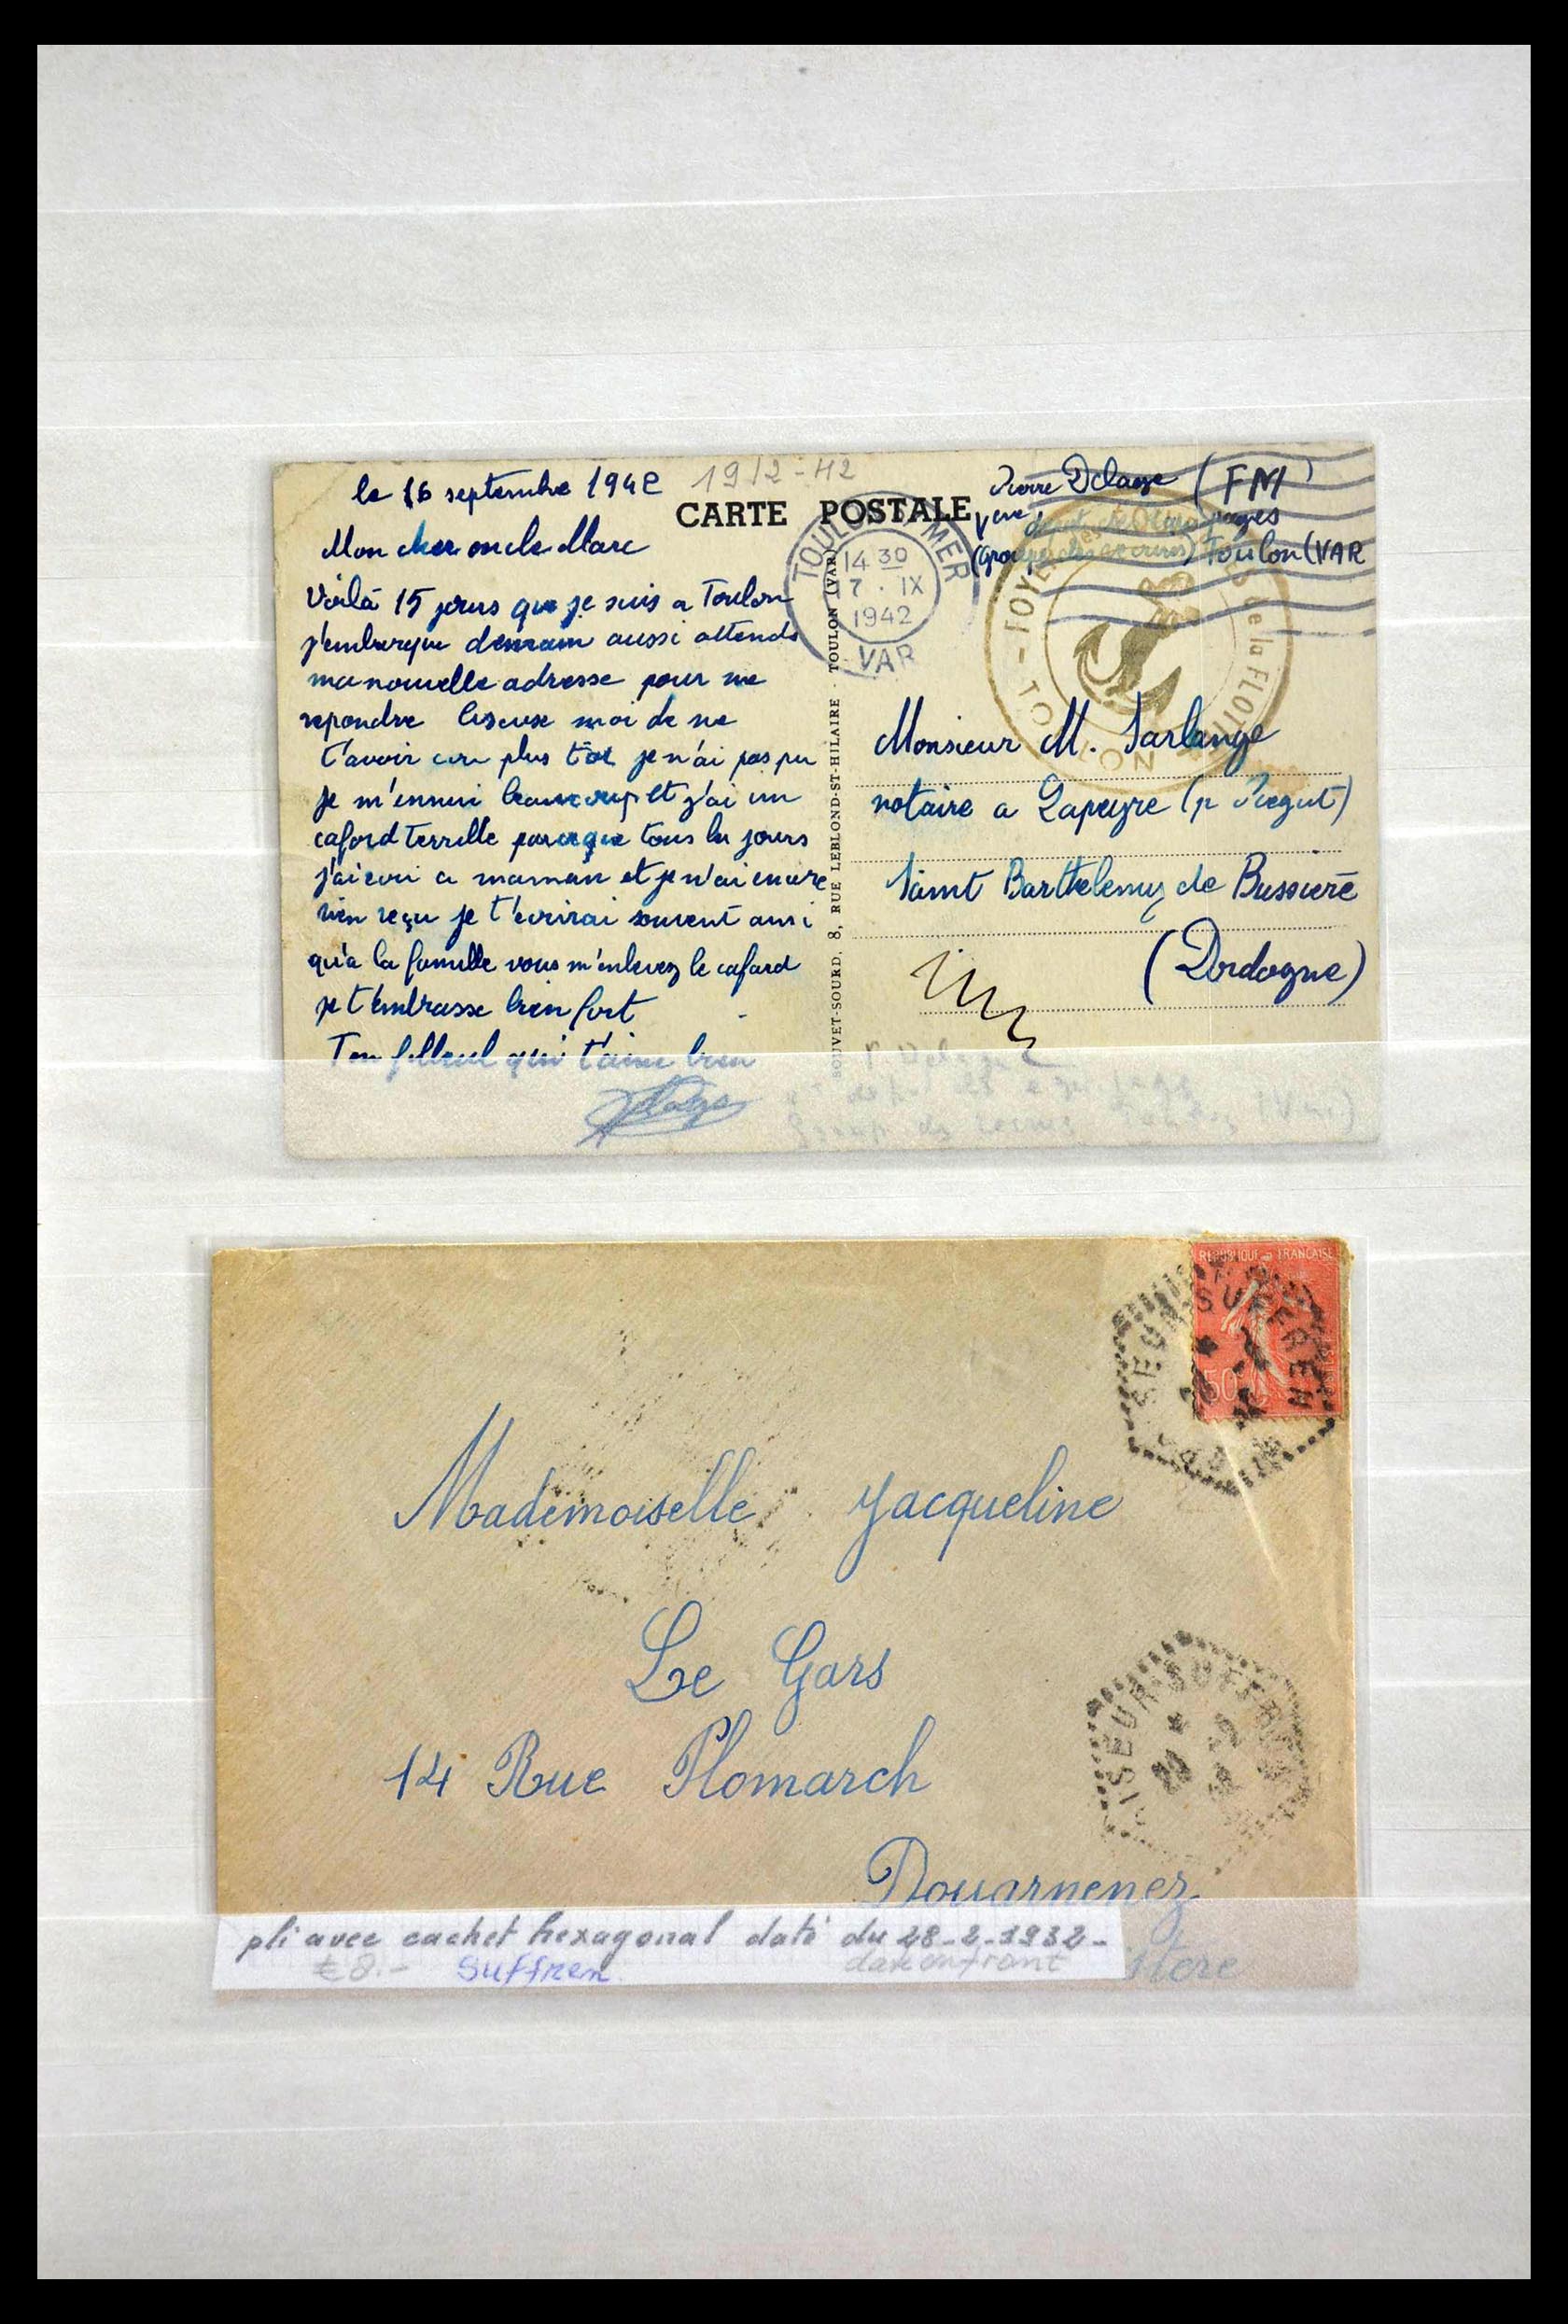 le 16 septembre 1942
CARTE POSTALE
Mon cher oncle Marc
Voilà 15 jours que je suis a Toulon
j'embarque demain aussi attends
ma nouvelle adresse pour me
repondre Excuse moi de ne
t'avoir plus tot je n'ai pas pu
je m'ennui beaucoup et j'ai un
cafard terrille parceque tous les jours
j'ai ecri a maman et je n'ai encore
rien reçu je t'ecrirai souvent ansi
qu'a la famille vous m'enlevez le cafard
je t'embrasse bien fort
Ton filleul qui t'aime bien
SOUVET-SOURD, 8, RUE LEBLOND-ST-HILAIRE - TOULON (VAR)
TOULON MER
14 30
17 · IX
1942
VAR
Pierre Delage (FM)
Toulon (VAR
FOYER de la FLOTTE
- TOULON
Monsieur M. Sarlange
notaire a Lapeyre (p Piegut)
Saint Barthelemy de Bussiere
(Dordogne)
P. Delage
(Var)
REPUBLIQUE FRANCAISE
50
SUFFREN
Mademoiselle Jacqueline
Le Gars
14 Rue Plomarch
Douarnenez
istere
CROISEUR SUFFREN
28 -2
pli avec cachet hexagonal daté du 28-2-1932-
€ 8.- Suffren date on front